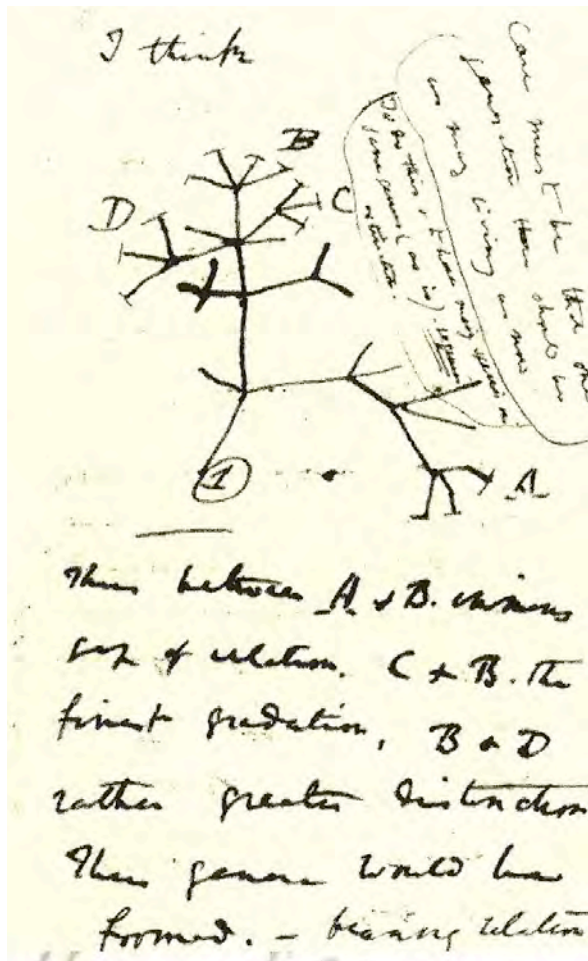 I think
B
C
D
A
1
Case must be that one
generation then should be
as many living as now
To do this & to have many species in
same genus (as is) requires
extinction.
Thus between A & B. immense
gap of relation. C & B. the
finest gradation, B & D
rather greater distinction
Thus genera would be
formed. – bearing relation